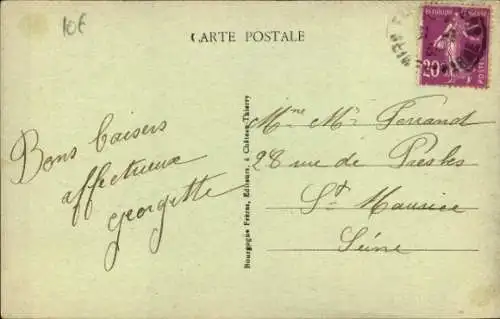 10€
CARTE POSTALE
RÉPUBLIQUE FRANÇAISE
20c
POSTES
Bons baisers
affectueux
Georgette
Bourgogne Frères, Editeurs, à Château-Thierry
Mme Mr Ferrand
28 rue de Presles
St Maurice
Seine